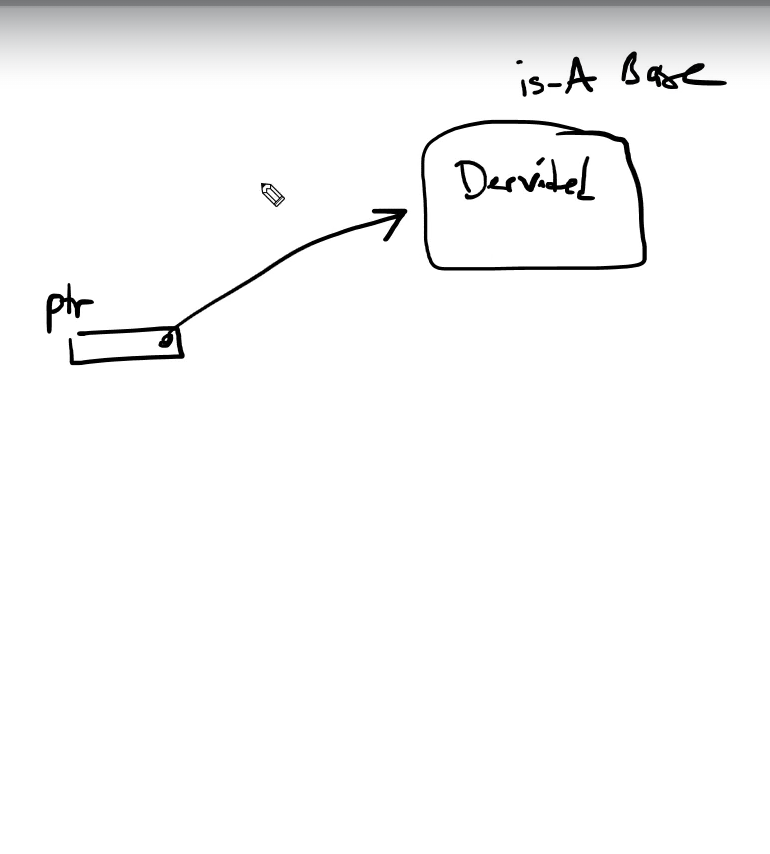 is-A Base
Dervided
ptr